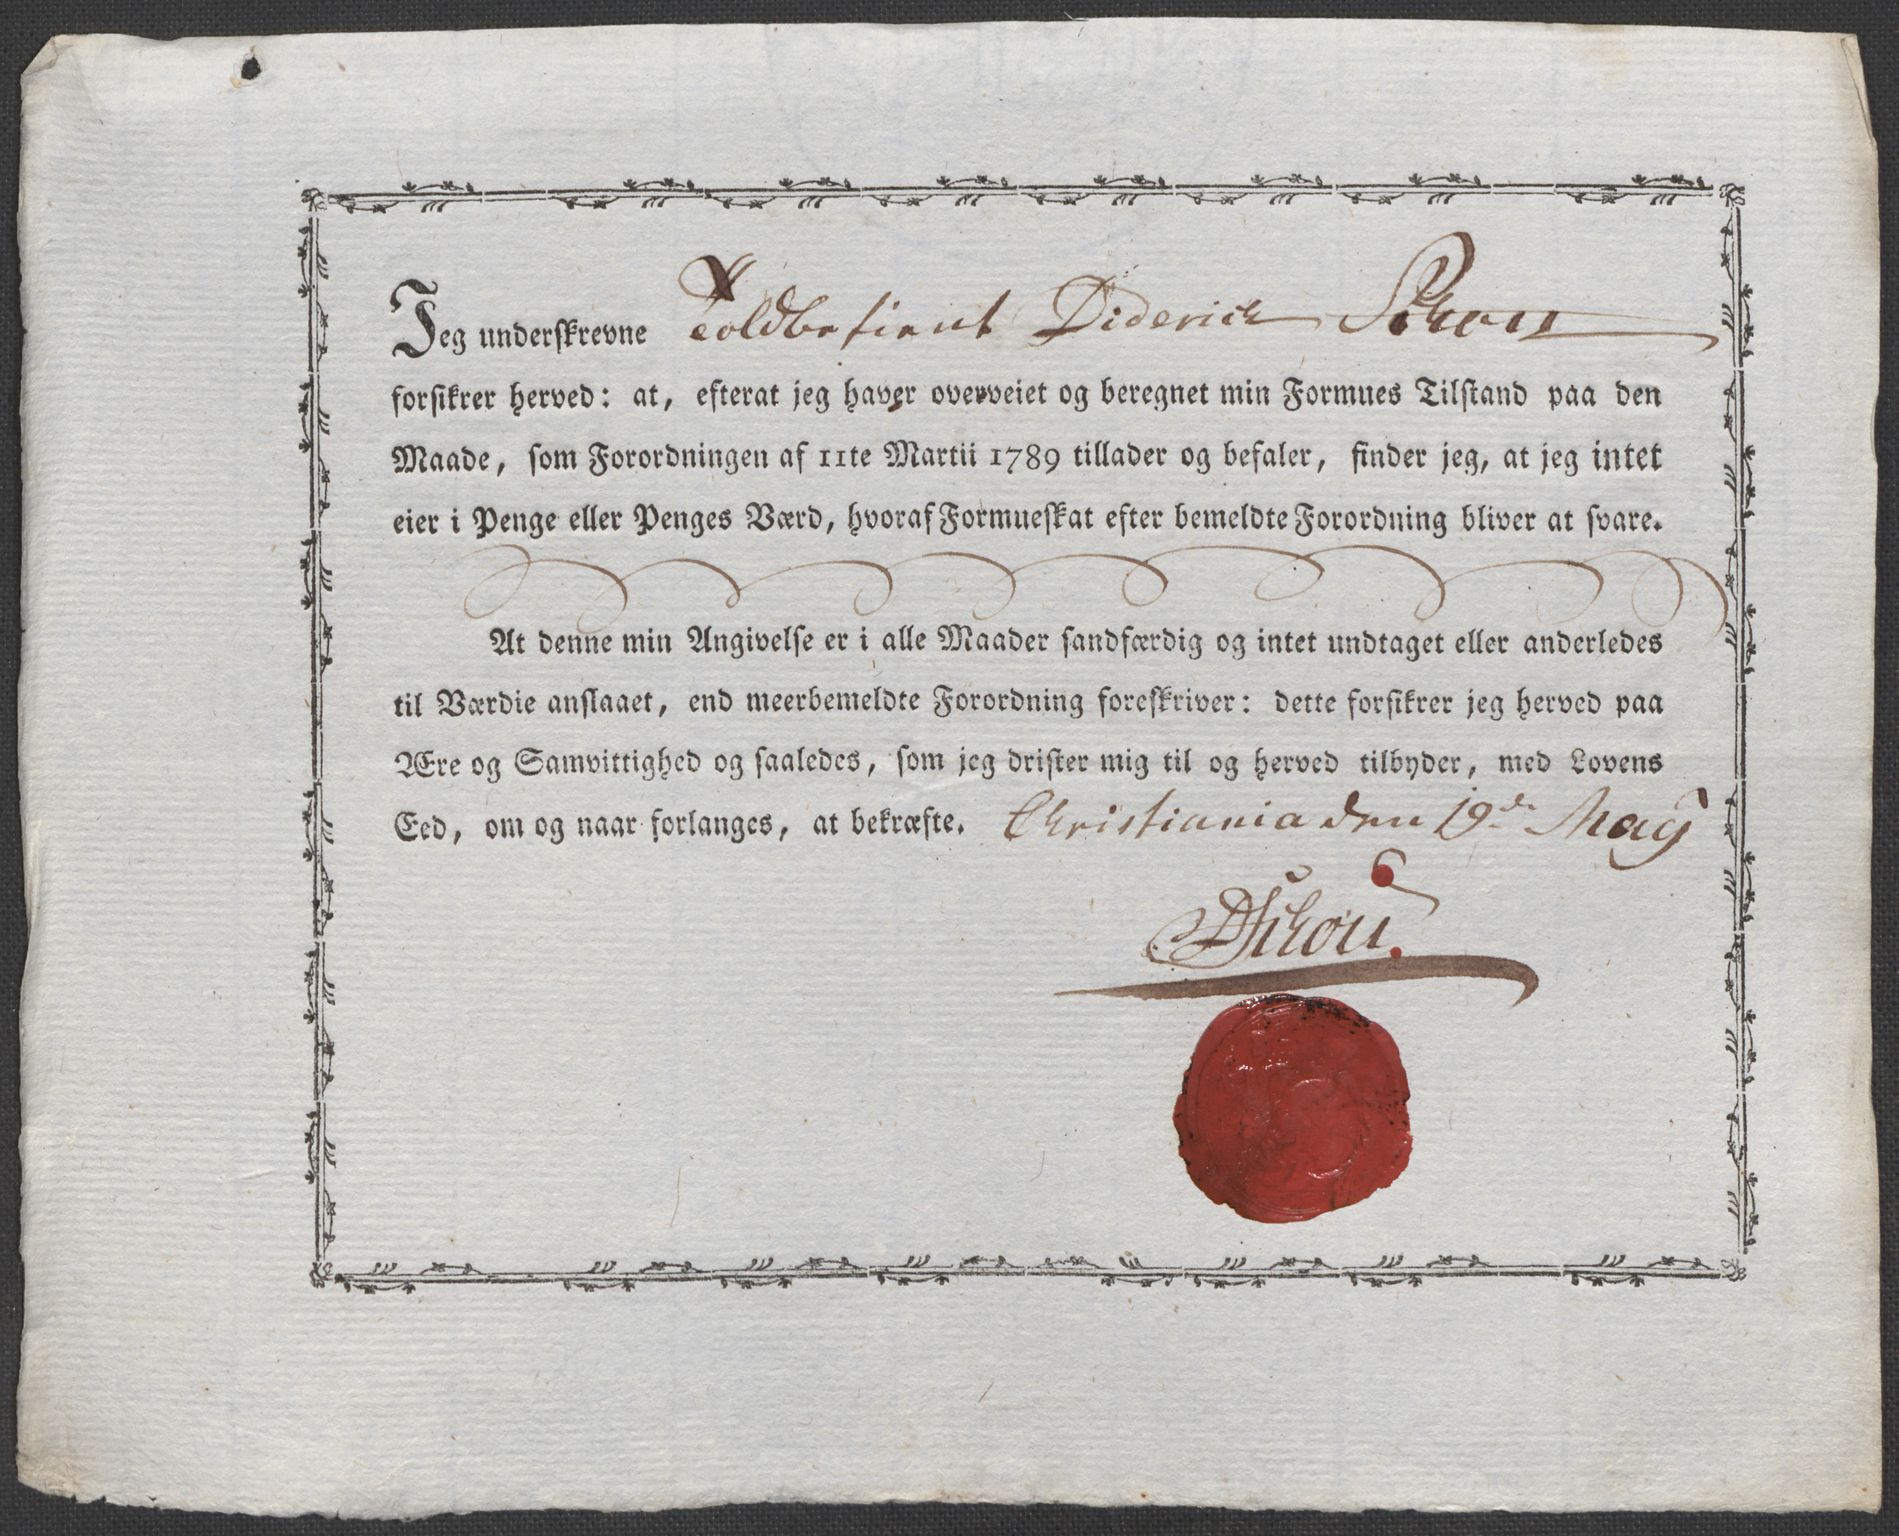 Jeg underskrevne Toldbetient Diderich Schou
forsikrer herved: at, efterat jeg haver overveiet og beregnet min Formues Tilstand paa den
Maade, som Forordningen af 11te Martii 1789 tillader og befaler, finder jeg, at jeg intet
eier i Penge eller Penges Værd, hvoraf Formueskat efter bemeldte Forordning bliver at svare.
At denne min Angivelse er i alle Maader sandfærdig og intet undtaget eller anderledes
til Værdie anslaaet, end meerbemeldte Forordning foreskriver: dette forsikrer jeg herved paa
Ære og Samvittighed og saaledes, som jeg drister mig til og herved tilbyder, med Lovens
Eed, om og naar forlanges, at bekræfte. Christiania den 19de May
DSchou